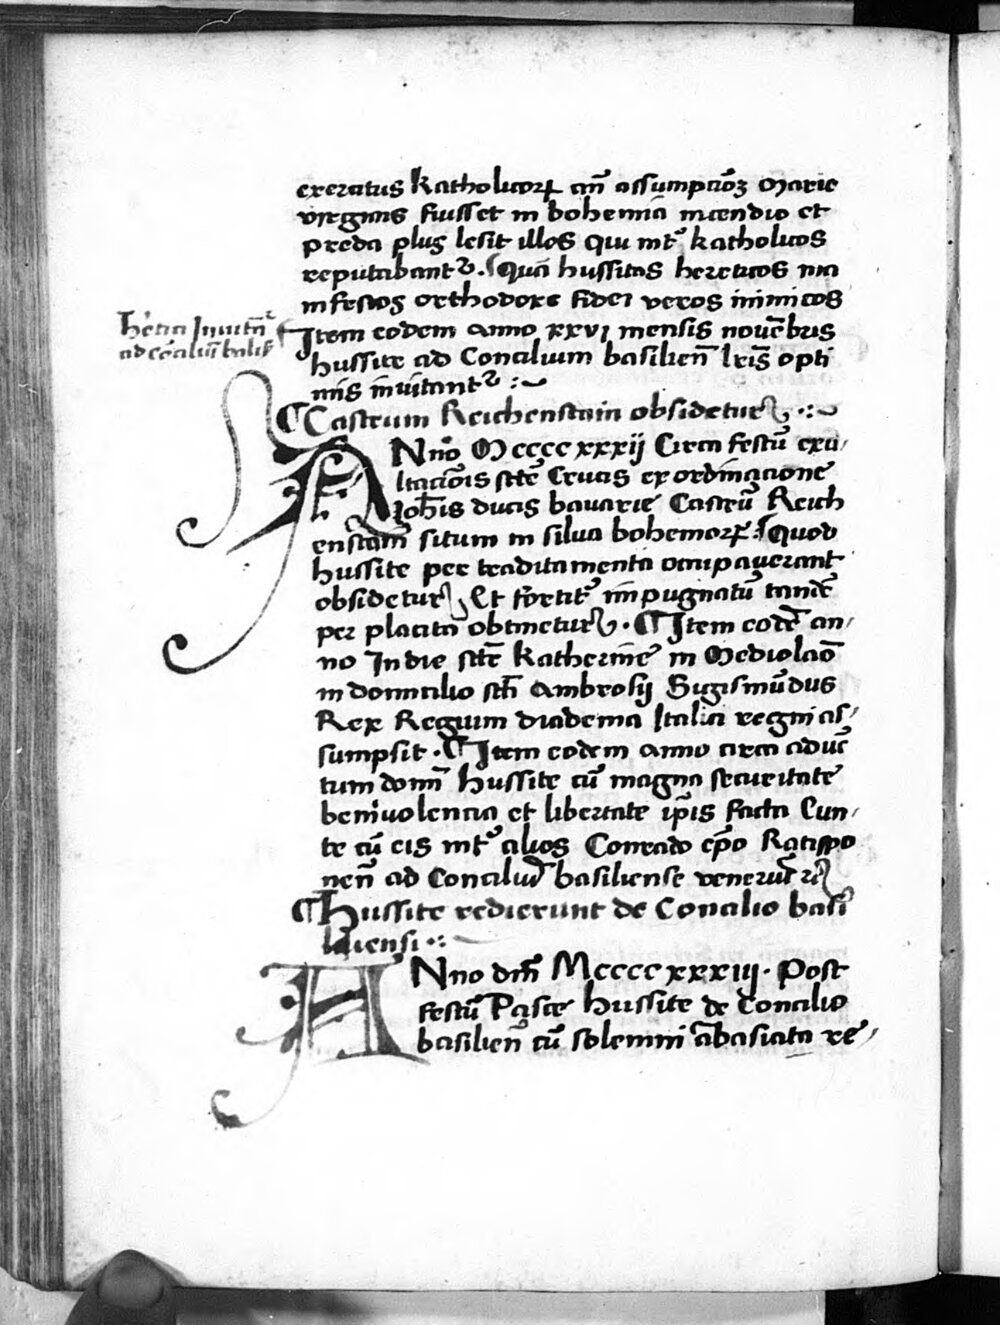 exercitus Katholicorꝝ an̄ assumpc̄ōꝫ Marie
virginis fuisset in bohemia incendio et
preda plus lesit illos qui int᷑ katholicos
reputabant᷑. Quā hussitas hereticos ma
nifestos orthodoxe fidei veros inimicos
Hetici Inuitant᷑
ad c̄ciliū basił
Item eodem anno xxvi mensis nouēbris
hussite ad Concilium basilien̄ lr̄is opti
mis inuitant᷑
¶ Castrum Reichenstain obsidetur
ANno Mccccxxxij Circa festū exa/
ltacōnis scт̄e Crucis ex ordinacione
Ioh̄is ducis bauarie Castrū Reich
enstain situm in silua bohemorꝝ Quod
hussite per traditamenta occupauerant
obsidetur Et fortit᷑ impugnatū tandē
per placita obtinetur. ¶ Item eodē an/
no In die scт̄e Katherine in Mediolan̄
in domicilio sc̄i Ambrosij Sigismūdus
Rex Regium diadema Italici regni as/
sumpsit. ¶ Item eodem anno circa aduē
tum domī hussite cū magna securitate
beniuolencia et libertate ip̄is facta Eun/
te cū eis int᷑ alios Conrado ep̄o Ratispo
nen̄ ad Conciliū basiliense venerūt
¶ Hussite redierunt de Concilio basi
liensi
ANno dn̄i Mccccxxxiij. Post
festū Pasce hussite de Concilio
basilien̄ cū solemni ābasiata re/